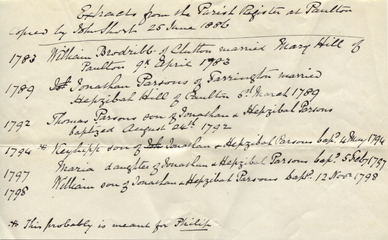 Extracts from the Parish Register at Paulton
copied by John Short 25 June 1886
1783 William Brodribb of Clutton married Mary Hill of
Paulton 9th April 1783
1789 Jonathan Parsons of Farrington married
Hepzibah Hill of Paulton 5th March 1789
1792 Thomas Parsons son of Jonathan & Hepzibah Parsons
baptized August 24th 1792
1794 * Keyhipp son of Jonathan & Hepzibah Parsons bapd 4 May 1794
1797 Maria daughter of Jonathan & Hepzibah Parsons bapd 5 Feby 1797
1798 William son of Jonathan & Hepzibah Parsons bapd 12 Novr 1798
* This probably is meant for Philip